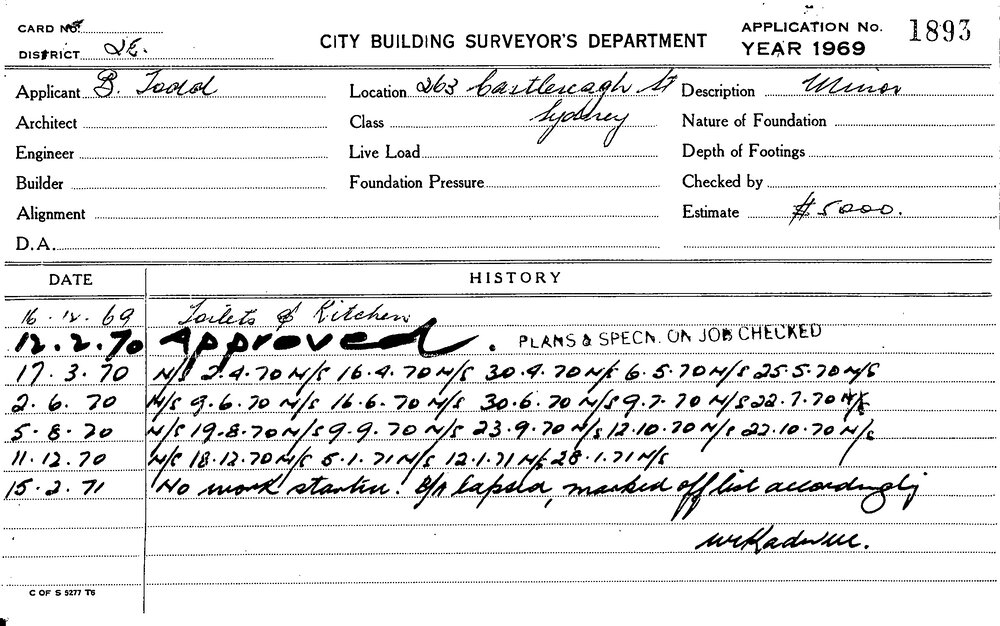 CARD No.
DISTRICT 2E.
CITY BUILDING SURVEYOR'S DEPARTMENT
APPLICATION No. 1893
YEAR 1969
Applicant B. Todd Location 263 Castlereagh St Description Minor
Architect Class Sydney Nature of Foundation
Engineer Live Load Depth of Footings
Builder Foundation Pressure Checked by
Alignment Estimate $5000.
D.A.
DATE HISTORY
16.12.69 Toilets & Kitchen
12.2.70 Approved. PLANS & SPECN. ON JOB CHECKED
17.3.70 N/S 2.4.70 N/S 16.4.70 N/S 30.4.70 N/S 6.5.70 N/S 25.5.70 N/S
2.6.70 N/S 9.6.70 N/S 16.6.70 N/S 30.6.70 N/S 9.7.70 N/S 22.7.70 N/S
5.8.70 N/S 19.8.70 N/S 9.9.70 N/S 23.9.70 N/S 12.10.70 N/S 22.10.70 N/S
11.12.70 N/S 18.12.70 N/S 5.1.71 N/S 12.1.71 N/S 28.1.71 N/S
15.2.71 No work started. B/A lapsed, marked off list accordingly
C OF S 5277 T6